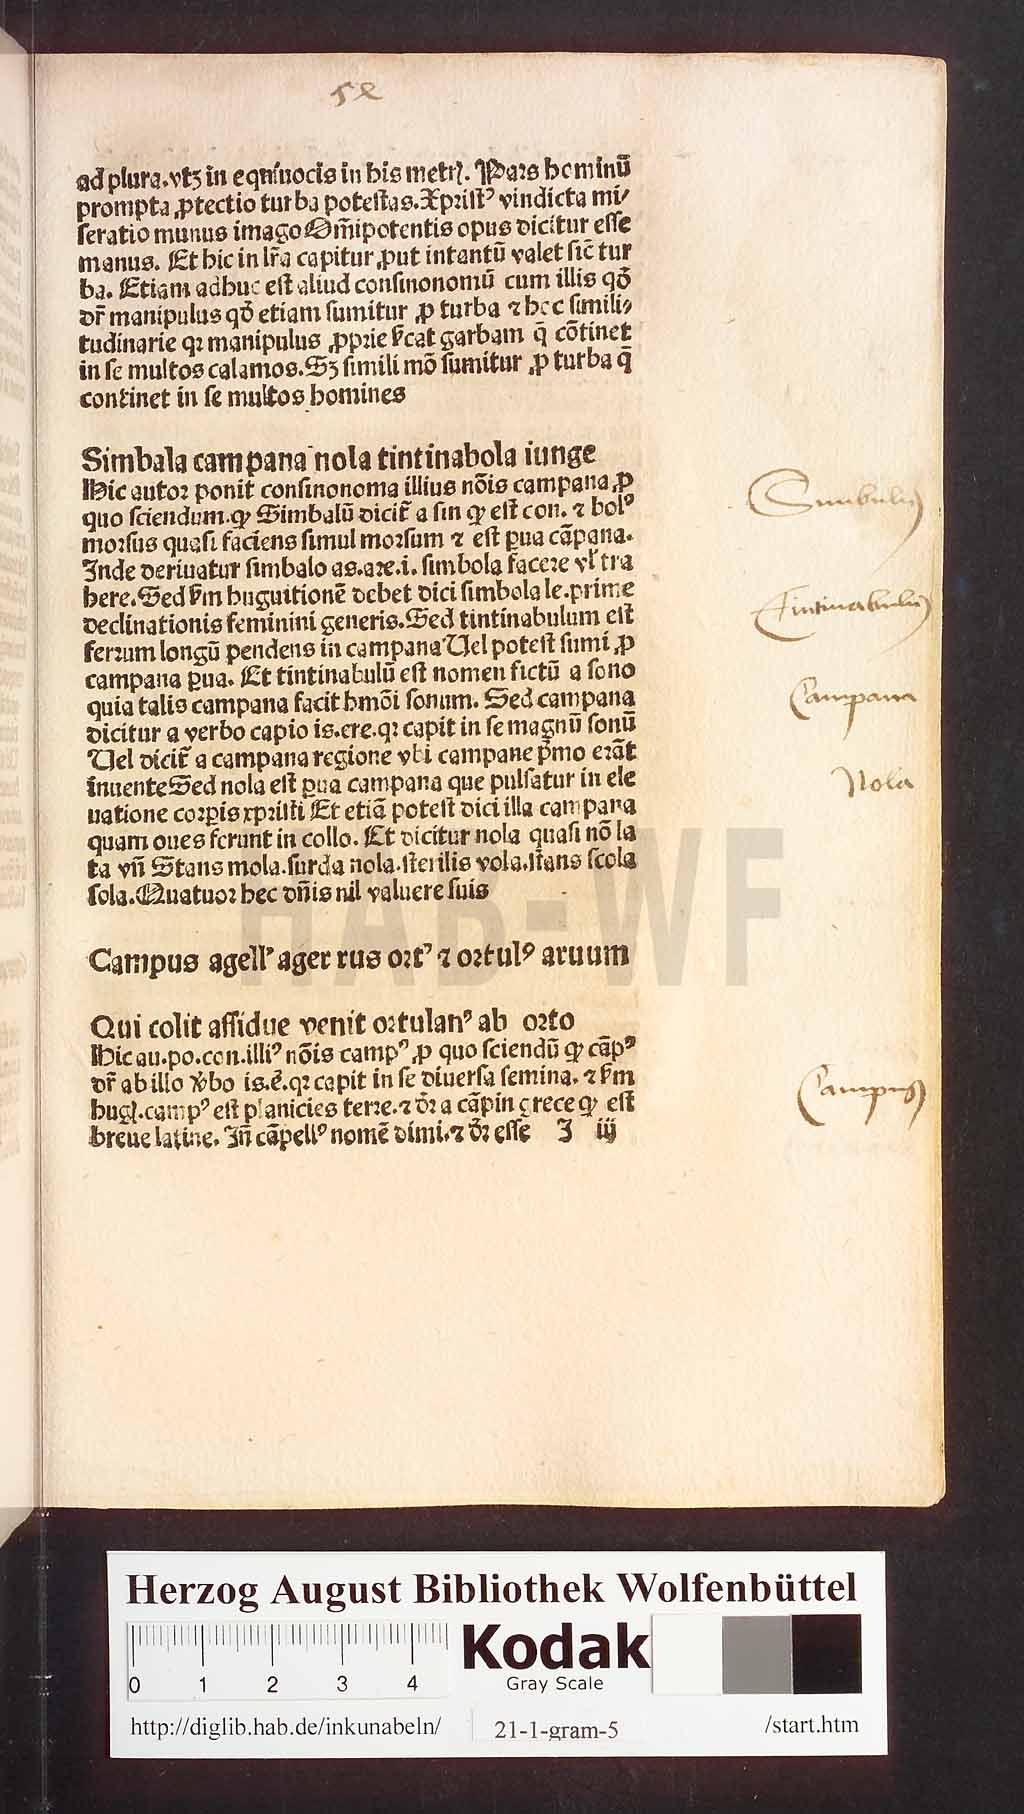 ad plura.vtꝫ in equiuocis in his metꝝ. Pars hominū
prompta ꝓtectio turba potestas. Xprist⁹ vindicta mi/
seratio munus imago Om̄ipotentis opus dicitur esse
manus. Et hic in lr̄a capitur ꝓut intantū valet sic̄ tur
ba. Etiam adhuc est aliud consinonomū cum illis qđ
dr̄ manipulus qđ etiam sumitur ꝓ turba ⁊ hec simili/
tudinarie qꝛ manipulus ꝓprie s̄cat garbam q̄ cōtinet
in se multos calamos. Sꝫ simili mō sumitur ꝓ turba q̄
continet in se multos homines
Simbala campana nola tintinabola iunge
Hic autor ponit consinonoma illius nōis campana ꝓ
quo sciendum.ꝙ Simbalū dicit̄ a sin ꝙ est con. ⁊ bol⁹
morsus quasi faciens simul morsum ⁊ est ꝑua cāpana.
Inde deriuatur simbalo as.are.i. simbola facere vl' tra
here. Sed s̄m huguitionē debet dici simbola le.prime
declinationis feminini generis. Sed tintinabulum est
ferrum longū pendens in campana Uel potest sumi ꝓ
campana ꝑua. Et tintinabulū est nomen fictū a sono
quia talis campana facit hmōi sonum. Sed campana
dicitur a verbo capio is.ere.qꝛ capit in se magnū sonū
Uel dicit̄ a campana regione vbi campane p̄mo erāt
inuente Sed nola est ꝑua campana que pulsatur in ele
uatione corꝑis xpristi Et etiā potest dici illa campana
quam oues ferunt in collo. Et dicitur nola quasi nō la
ta vn̄ Stans mola.surda nola.sterilis vola.stans scola
sola. Quatuor hec dn̄is nil valuere suis
Campus agell⁹ ager rus ort⁹ ⁊ ortul⁹ aruum
Qui colit assidue venit ortulan⁹ ab orto
Hic au.po.con.illi⁹ nōis camp⁹ ꝓ quo sciendū ꝙ cāp⁹
dr̄ ab illo v̄bo is.ē.qꝛ capit in se diuersa semina. ⁊ s̄m
hugꝝ.camp⁹ est planicies terre.⁊ d̄r a cāpin grece ꝙ est
breue latine. In̄ cāpell⁹ nomē dimi.⁊ d̄r esse I iij
Simbulū
Tintinabulū
Campana
Nola
Campus
HAB-WF
Herzog August Bibliothek Wolfenbüttel
0 1 2 3 4
Kodak
Gray Scale
http://diglib.hab.de/inkunabeln/ 21-1-gram-5 /start.htm